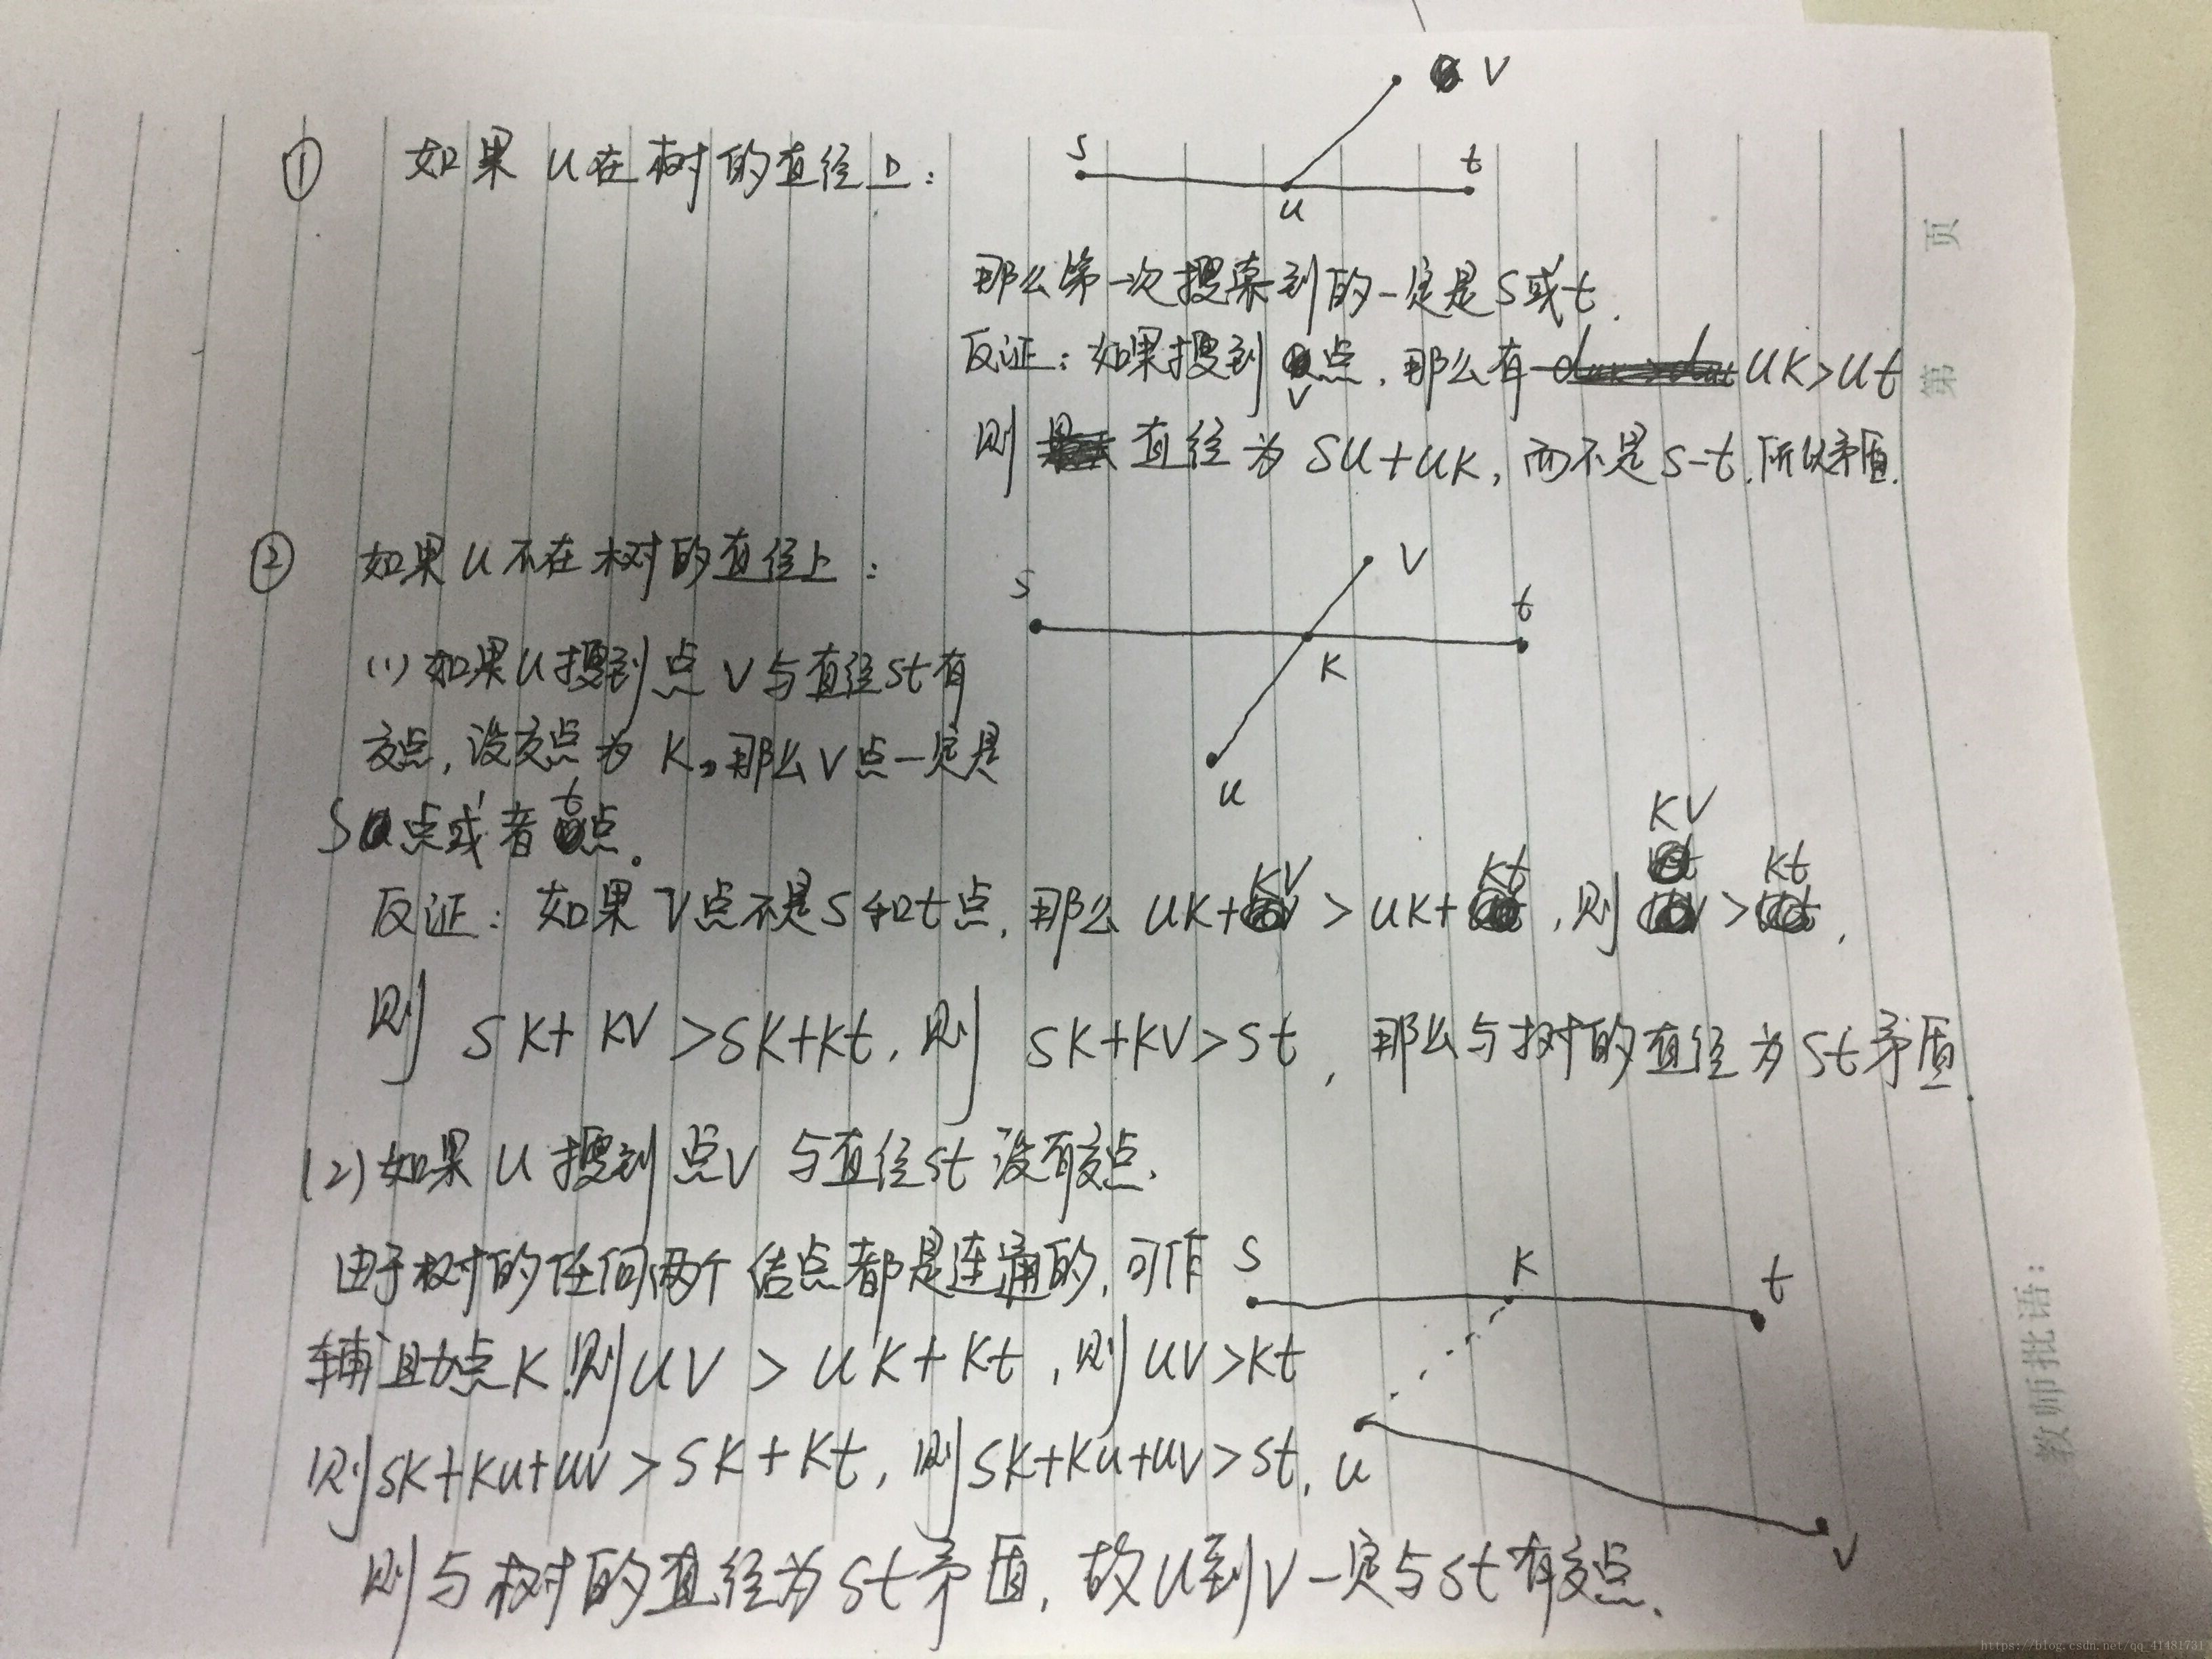 ① 如果 u在树的直径上:
s u t v
那么第一次搜索到的一定是s或t.
反证:如果搜到v点,那么有 uk>ut
则 直径为 su+uk,而不是s-t.所以矛盾.
② 如果u不在树的直径上:
s k t v u
(1)如果u搜到点v与直径st有
交点,设交点为 k,那么v点一定是
s点或者t点.
反证:如果v点不是s和t点,那么 uk+kv > uk+kt,则 kv > kt,
则 sk+kv >sk+kt,则 sk+kv>st,那么与树的直径为st矛盾.
(2)如果 u搜到点v 与直径st没有交点.
由于树的任何两个结点都是连通的,可作
辅助点k.则uv > uk+kt,则uv>kt
则sk+ku+uv>sk+kt,则sk+ku+uv>st,
s k t u v
则与树的直径为st矛盾,故u到v一定与st有交点.
第 页
教师批语:
https://blog.csdn.net/qq_41481731